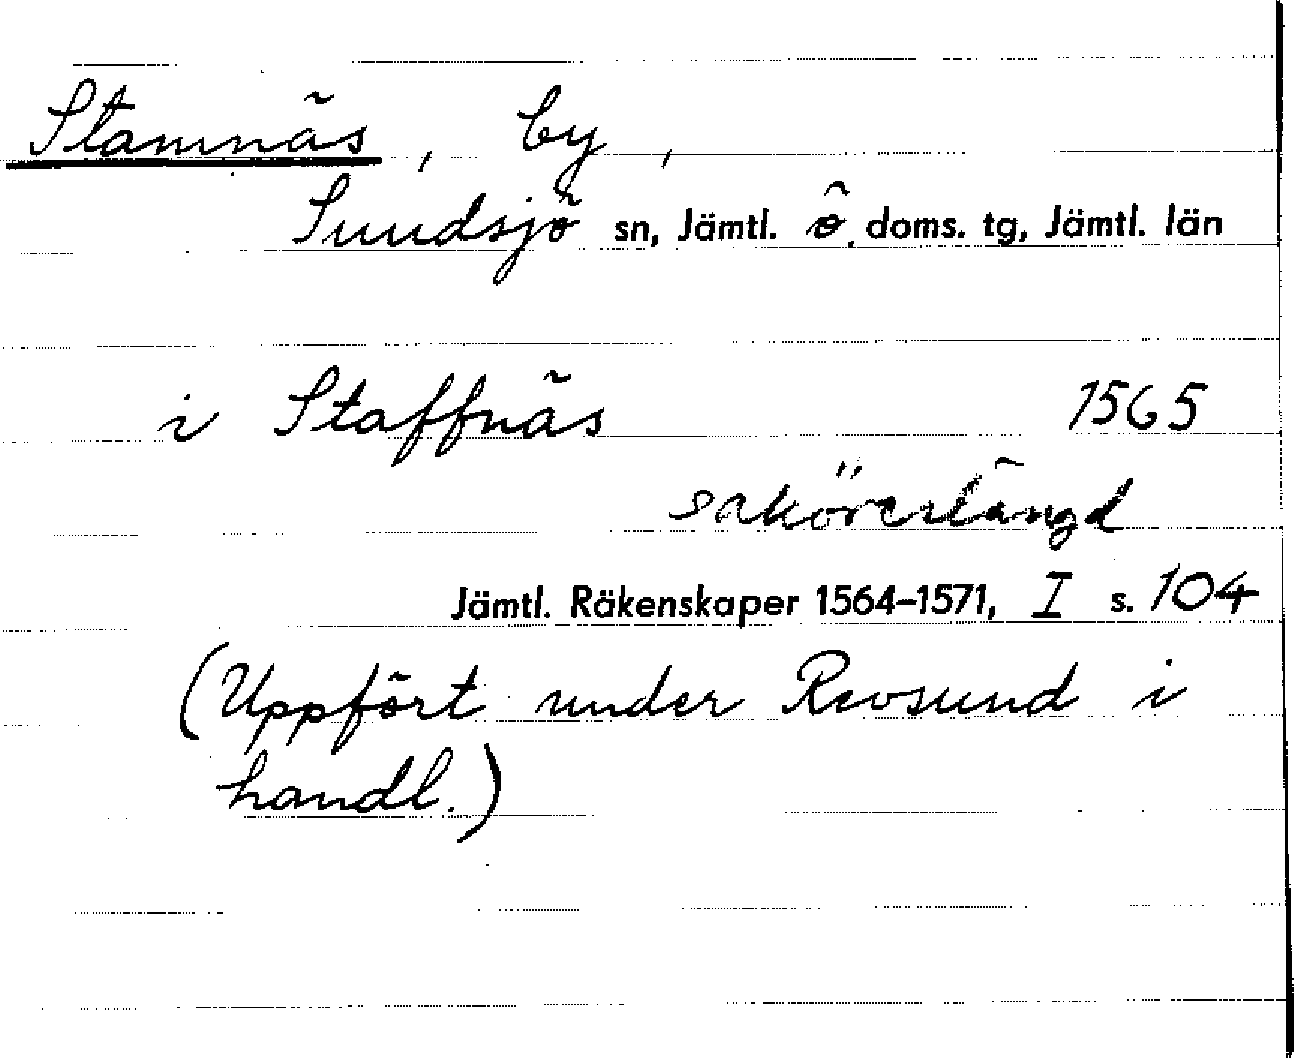 Stamnäs, by,
Sundsjö sn, Jämtl. ö. doms. tg, Jämtl. län
i Staffnäs 1565
saköreslängd
Jämtl. Räkenskaper 1564-1571, I s. 104
(Uppfört under Revsund i
handl.)